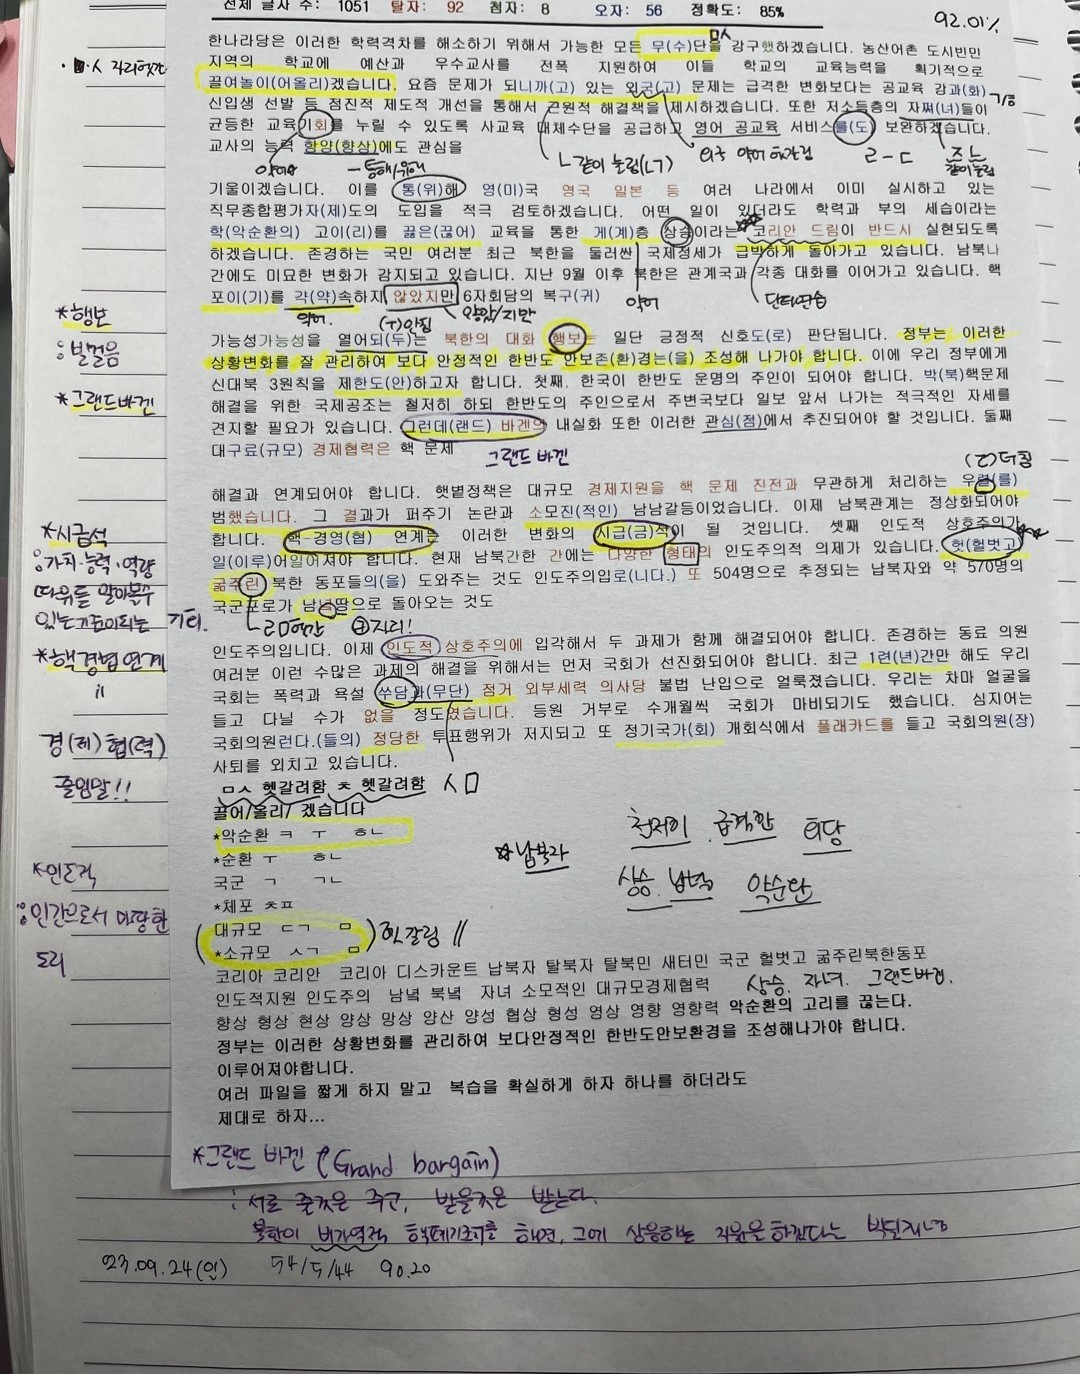 전체 글자 수: 1051 탈자: 92 첨자: 8 오자: 56 정확도: 85%
92.01%
한나라당은 이러한 학력격차를 해소하기 위해서 가능한 모든 무(수)단을 강구했하겠습니다. 농산어촌 도시빈민
ㅁㅅ
지역의 학교에 예산과 우수교사를 전폭 지원하여 이들 학교의 교육능력을 획기적으로
끌여놀이(어올리)겠습니다. 요즘 문제가 되니까(고) 있는 외국(고) 문제는 급격한 변화보다는 공교육 강과(화)
신입생 선발 등 점진적 제도적 개선을 통해서 근원적 해결책을 제시하겠습니다. 또한 저소등층의 자쩌(녀)들이
균등한 교육기회를 누릴 수 있도록 사교육 대체수단을 공급하고 영어 공교육 서비스를(도) 보완하겠습니다.
교사의 능력 항양(향상)에도 관심을
약어
ㄴ같이 눌림(ㄴㄱ)
ㄹ-ㄷ
같이눌림
기울이겠습니다. 이를 통(위)해 영(미)국 영국 일본 등 여러 나라에서 이미 실시하고 있는
직무종합평가자(제)도의 도입을 적극 검토하겠습니다. 어떤 일이 있더라도 학력과 부의 세습이라는
학(악순환의) 고이(리)를 끓은(끊어) 교육을 통한 게(계)층 상승이라는 코리안 드림이 반드시 실현되도록
하겠습니다. 존경하는 국민 여러분 최근 북한을 둘러싼 국제정세가 급박하게 돌아가고 있습니다. 남북나
간에도 미묘한 변화가 감지되고 있습니다. 지난 9월 이후 북한은 관계국과 각종 대화를 이어가고 있습니다. 핵
포이(기)를 각(약)속하지 않았지만 6자회담의 복구(귀)
약어.
(ㅜ)안침
않았/지만
약어
단타연습
가능성가능성을 열어되(두)는 북한의 대화 행보는 일단 긍정적 신호도(로) 판단됩니다. 정부는 이러한
상황변화를 잘 관리하여 보다 안정적인 한반도 안보존(환)경는(을) 조성해 나가야 합니다. 이에 우리 정부에게
신대북 3원칙을 제한도(안)하고자 합니다. 첫째, 한국이 한반도 운명의 주인이 되어야 합니다. 박(북)핵문제
해결을 위한 국제공조는 철저히 하되 한반도의 주인으로서 주변국보다 일보 앞서 나가는 적극적인 자세를
견지할 필요가 있습니다. 그런데(랜드) 바겐의 내실화 또한 이러한 관심(점)에서 추진되어야 할 것입니다. 둘째
대구료(규모) 경제협력은 핵 문제
그랜드 바겐
(ㄹ)더침
해결과 연계되어야 합니다. 햇볕정책은 대규모 경제지원을 핵 문제 진전과 무관하게 처리하는 우렵(를)
범했습니다. 그 결과가 퍼주기 논란과 소모진(적인) 남남갈등이었습니다. 이제 남북관계는 정상화되어야
합니다. 핵 경영(협) 연계는 이러한 변화의 시급(금)석이 될 것입니다. 셋째 인도적 상호주의가
일(이루)어일어져야 합니다. 현재 남북간한 간에는 다양한 형태의 인도주의적 의제가 있습니다. 헛(헐벗고)
굶주린 북한 동포들의(을) 도와주는 것도 인도주의입로(니다.) 또 504명으로 추정되는 납북자와 약 570명의
국군포로가 남녁땅으로 돌아오는 것도
인도주의입니다. 이제 인도적 상호주의에 입각해서 두 과제가 함께 해결되어야 합니다. 존경하는 동료 의원
여러분 이런 수많은 과제의 해결을 위해서는 먼저 국회가 선진화되어야 합니다. 최근 1련(년)간만 해도 우리
국회는 폭력과 욕설 쑤담과(무단) 점거 외부세력 의사당 불법 난입으로 얼룩졌습니다. 우리는 차마 얼굴을
들고 다닐 수가 없을 정도였습니다. 등원 거부로 수개월씩 국회가 마비되기도 했습니다. 심지어는
국회의원런다.(들의) 정당한 투표행위가 저지되고 또 정기국가(회) 개회식에서 플래카드를 들고 국회의원(장)
사퇴를 외치고 있습니다.
ㅁㅅ 헷갈려함 ㅊ 헷갈려함 ㅅㅁ
끌어/올리/ 겠습니다
*악순환 ㅋ ㅜ ㅎㄴ
*순환 ㅜ ㅎㄴ
국군 ㄱ ㄱㄴ
*체포 ㅊㅍ
대규모 ㄷㄱ ㅁ
*소규모 ㅅㄱ ㅁ
☆납북자
급격한
의당
상승. 남녘 악순환
코리아 코리안 코리아 디스카운트 납북자 탈북자 탈북민 새터민 국군 헐벗고 굶주린북한동포
인도적지원 인도주의 남녘 북녘 자녀 소모적인 대규모경제협력 상승. 자녀. 그랜드바겐.
향상 형상 현상 양상 망상 양산 양성 협상 형성 영상 영향 영향력 악순환의 고리를 끊는다.
정부는 이러한 상황변화를 관리하여 보다안정적인 한반도안보환경을 조성해나가야 합니다.
이루어져야합니다.
여러 파일을 짧게 하지 말고 복습을 확실하게 하자 하나를 하더라도
제대로 하자...
*행보
: 발걸음
*그랜드바겐
*시금석
: 가치·능력·역량
따위를 알아볼수
있는 기준이되는 기회.
*핵경협 연계
=
경(제)협(력)
줄임말!!
*인도적
: 인간으로서 마땅한
도리
*그랜드 바겐 (Grand bargain)
: 서로 줄것은 주고, 받을것은 받는다.
북한이 비가역적 핵폐기조치를 하면, 그에 상응하는 지원을 하겠다는
23.09.24(일) 54/5/44 90.20